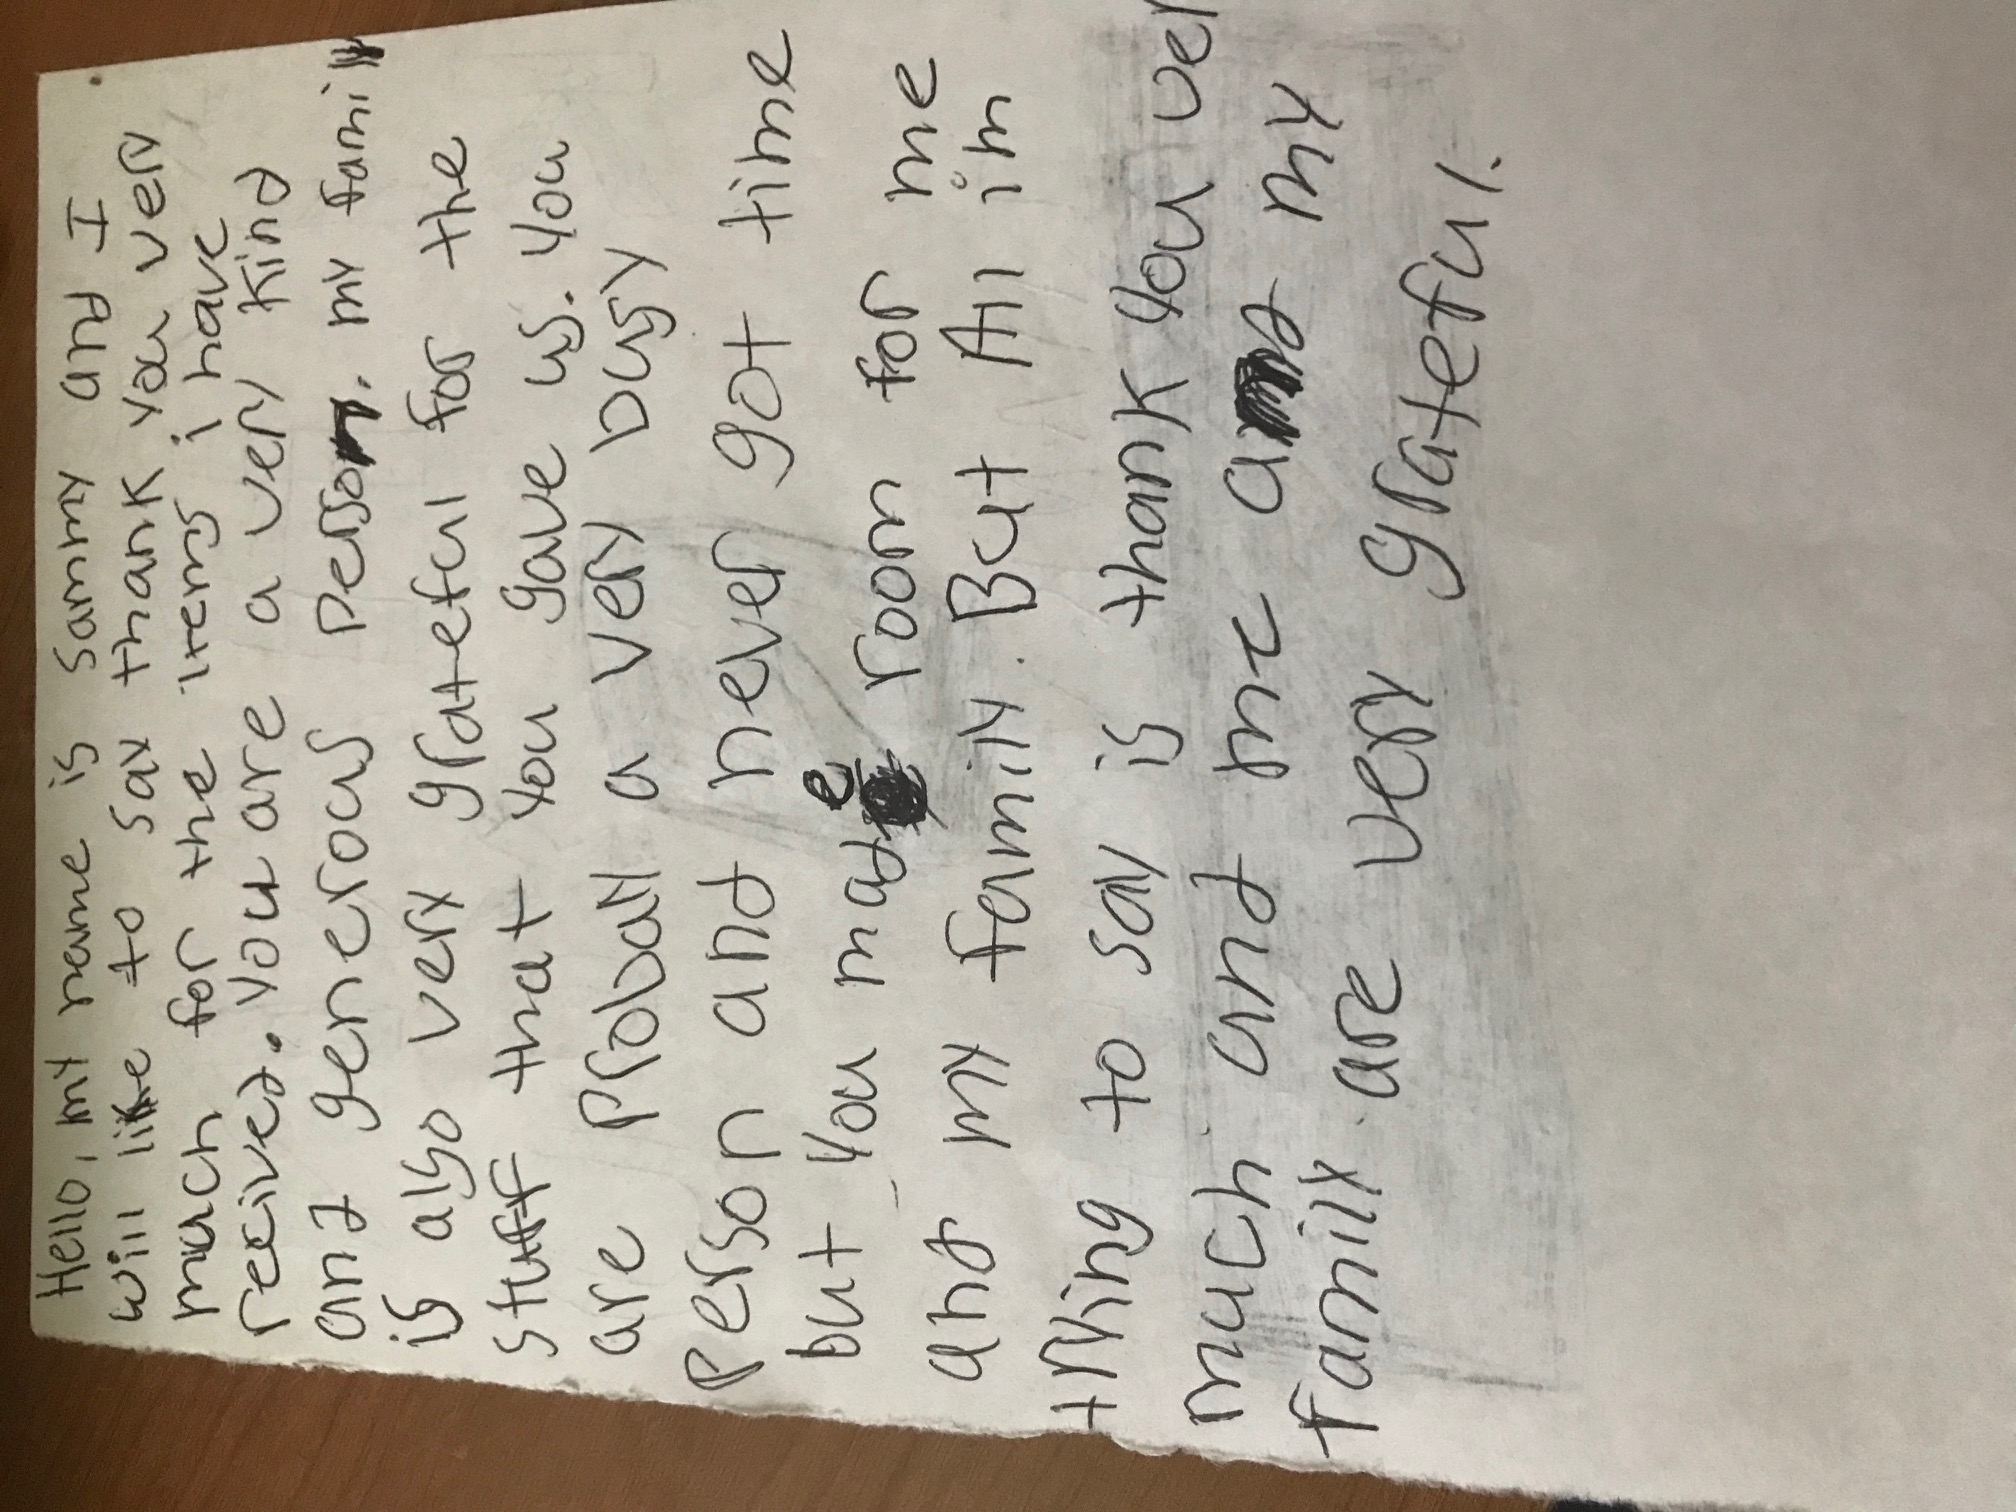 Hello, my name is Sammy and I
will like to say thank you very
much for the items i have
recived. you are a very kind
and generous person. my famil
is also very grateful for the
stuff that you gave us. you
are probaly a very busy
person and never got time
but you made room for me
and my family. But All im
trying to say is thank you ver
much and me and my
family are very grateful.